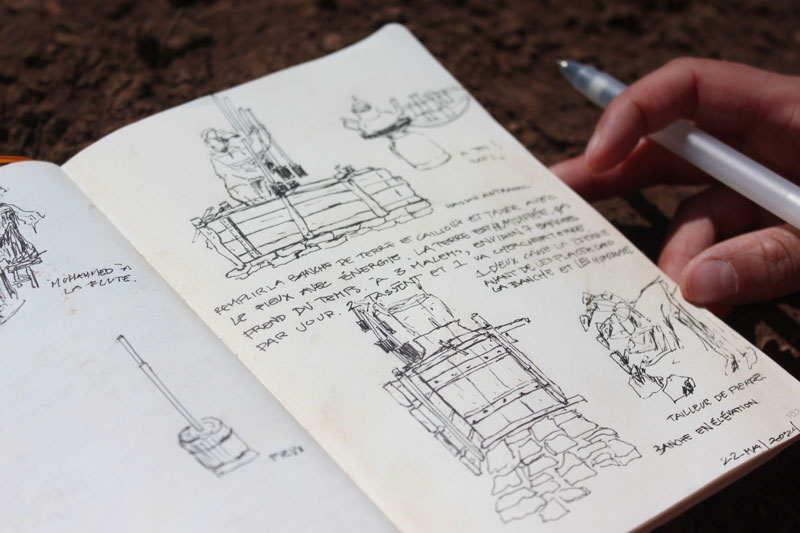 MOHAMMED À
LA FLUTE.
PIEUX
REMPLIR LA BANCHE DE TERRE ET CAILLOUX ET TASSER AVEC
LE PIEUX AVEC ÉNERGIE. LA TERRE EST HUMIDIFIÉE, ÇA
PREND DU TEMPS. À 3 MALEMS, ENVIRON 7 BANCHES
PAR JOUR. 2 TASSENT ET 1 VA CHERCHER
1 DEUX CASSE LA
AVANT DE
LA BANCHE ET LES
TAILLEUR DE PIERRE
BANCHE EN ÉLÉVATION.
22 MAI/2024